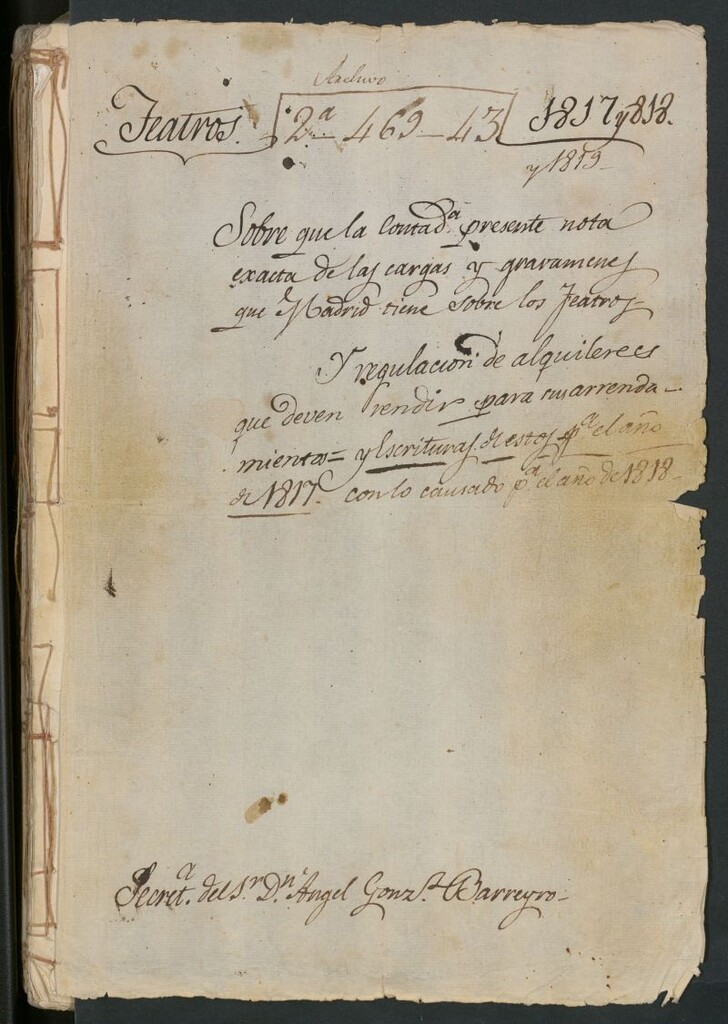 Archivo
Teatros. 2ª 469-43 1817 y 818.
y 1819
Sobre que la Contadª presente nota
exacta de las cargas y gravamenes
que Madrid tiene sobre los Teatros
Y regulacion de alquileres
que deven rendir para sus arrenda-
mientos= y Escrituras de estos pª el año
de 1817. con lo causado pª el año de 1818-
Secretª. del Sr. Dn. Angel Gonzz. Barreyro-